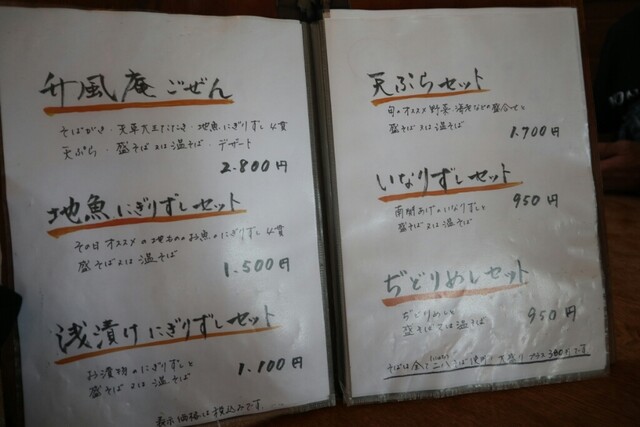 升風庵ごぜん
そばがき・天草大王たたき・地魚にぎりずし4貫
天ぷら・盛そば又は温そば・デザート
2.800円
地魚にぎりずしセット
その日オススメの地もののお魚のにぎりずし4貫
盛そば又は温そば
1.500円
浅漬けにぎりずしセット
お漬物のにぎりずしと
盛そば又は温そば
1.100円
表示価格は税込みです
天ぷらセット
旬のオススメ野菜・海老などの盛合せと
盛そば又は温そば
1.700円
いなりずしセット
南関あげのいなりずしと
盛そば又は温そば
950円
ぢどりめしセット
ぢどりめしと
盛そば又は温そば
950円
そばは全て二八そば使用 大盛りプラス300円です